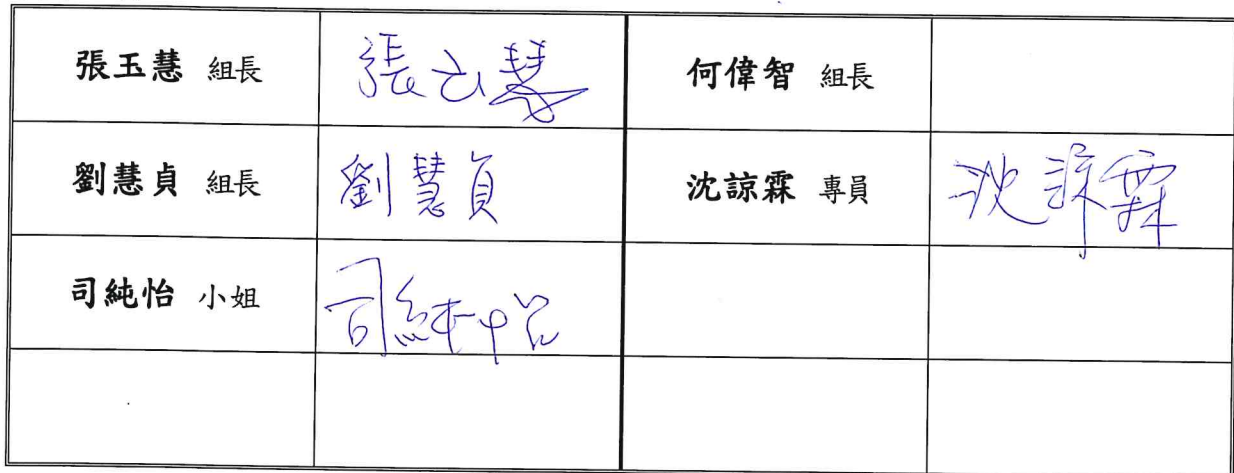 張玉慧 組長 張玉慧 何偉智 組長
劉慧貞 組長 劉慧貞 沈諒霖 專員 沈諒霖
司純怡 小姐 司純怡